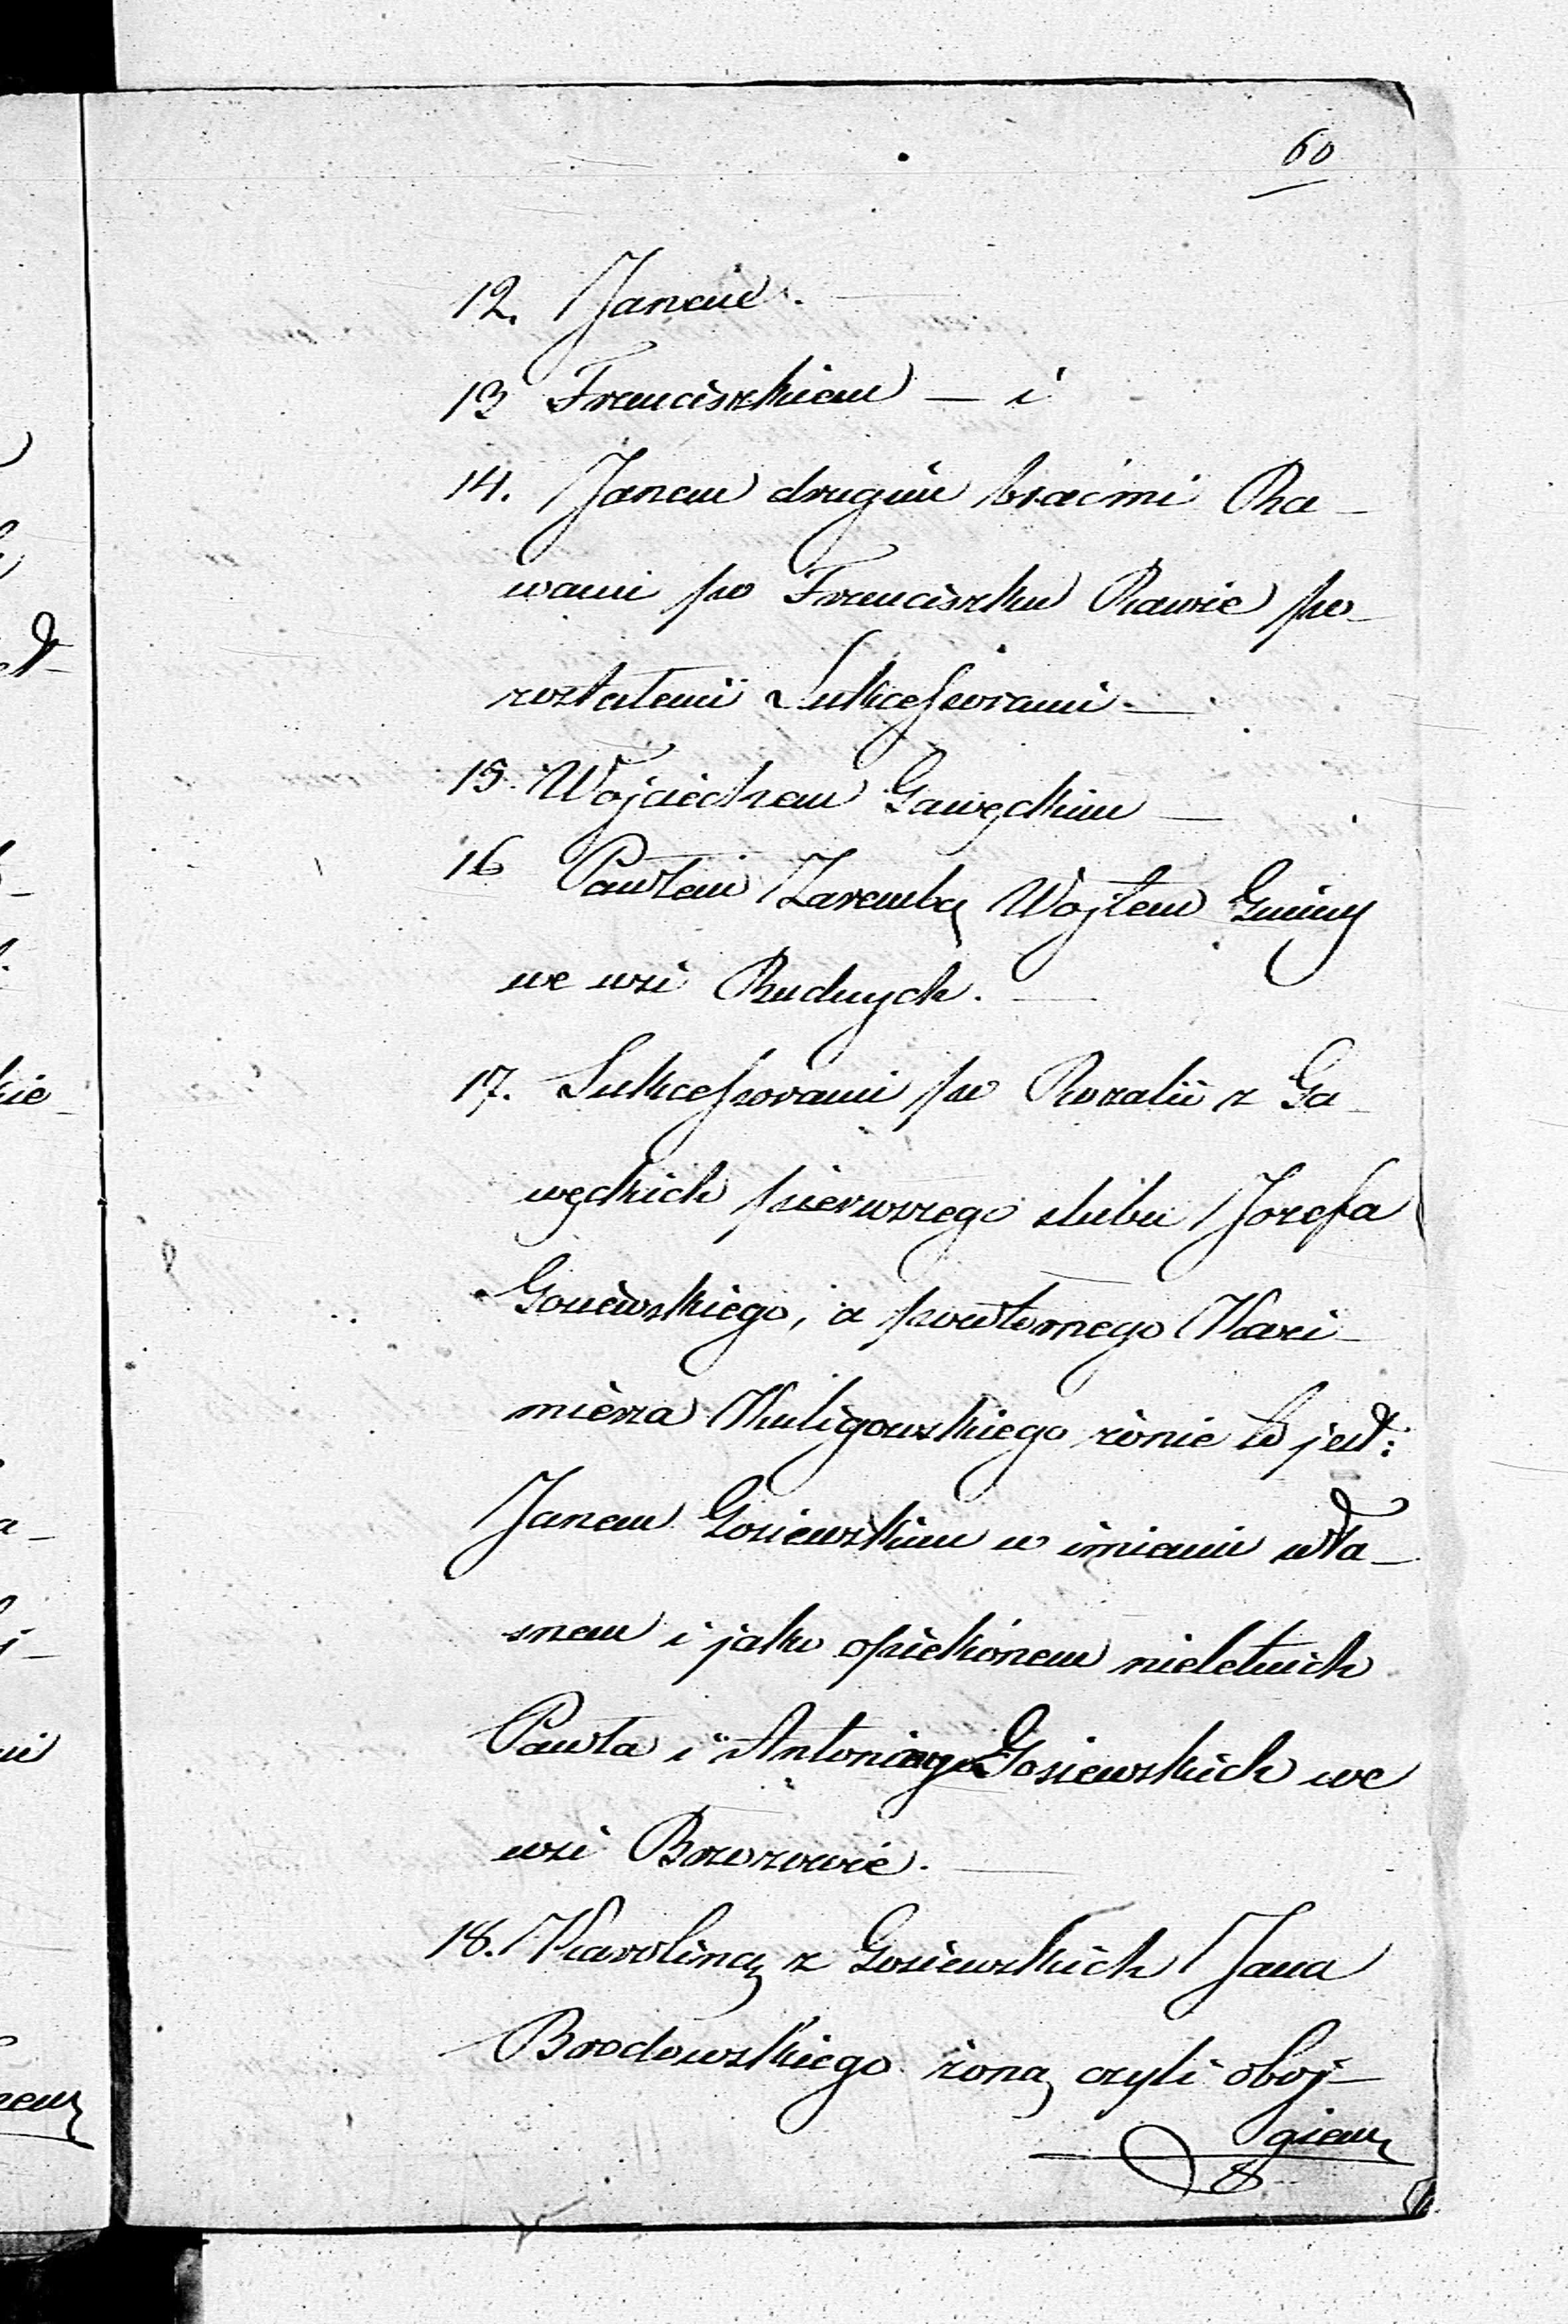 60
12. Janem.
13 Franciszkiem — i
14. Janem drugim braćmi Ra-
wami po Franciszku Rawie po-
zostałemi Sukcessorami. —
15. Wojciechem Gawęckim —
16 Pawłem Zarembą Wojtem Gminy
we wsi Rudnych. —
17. Sukcessorami po Rozalii z Ga-
węckich pierwszego slubu Jozefa
Gosiewskiego, a powtornego Kazi-
mierza Kuligowskiego żonie to jest:
Janem Gosiewskim w imieniu wła-
snem i jako opiekónem nieletnich
Pawła i Antoniego Gosiewskich we
wsi Brzozowie. —
18. Karoliną z Gosiewskich Jana
Brodowskiego żoną czyli oboj-
giem